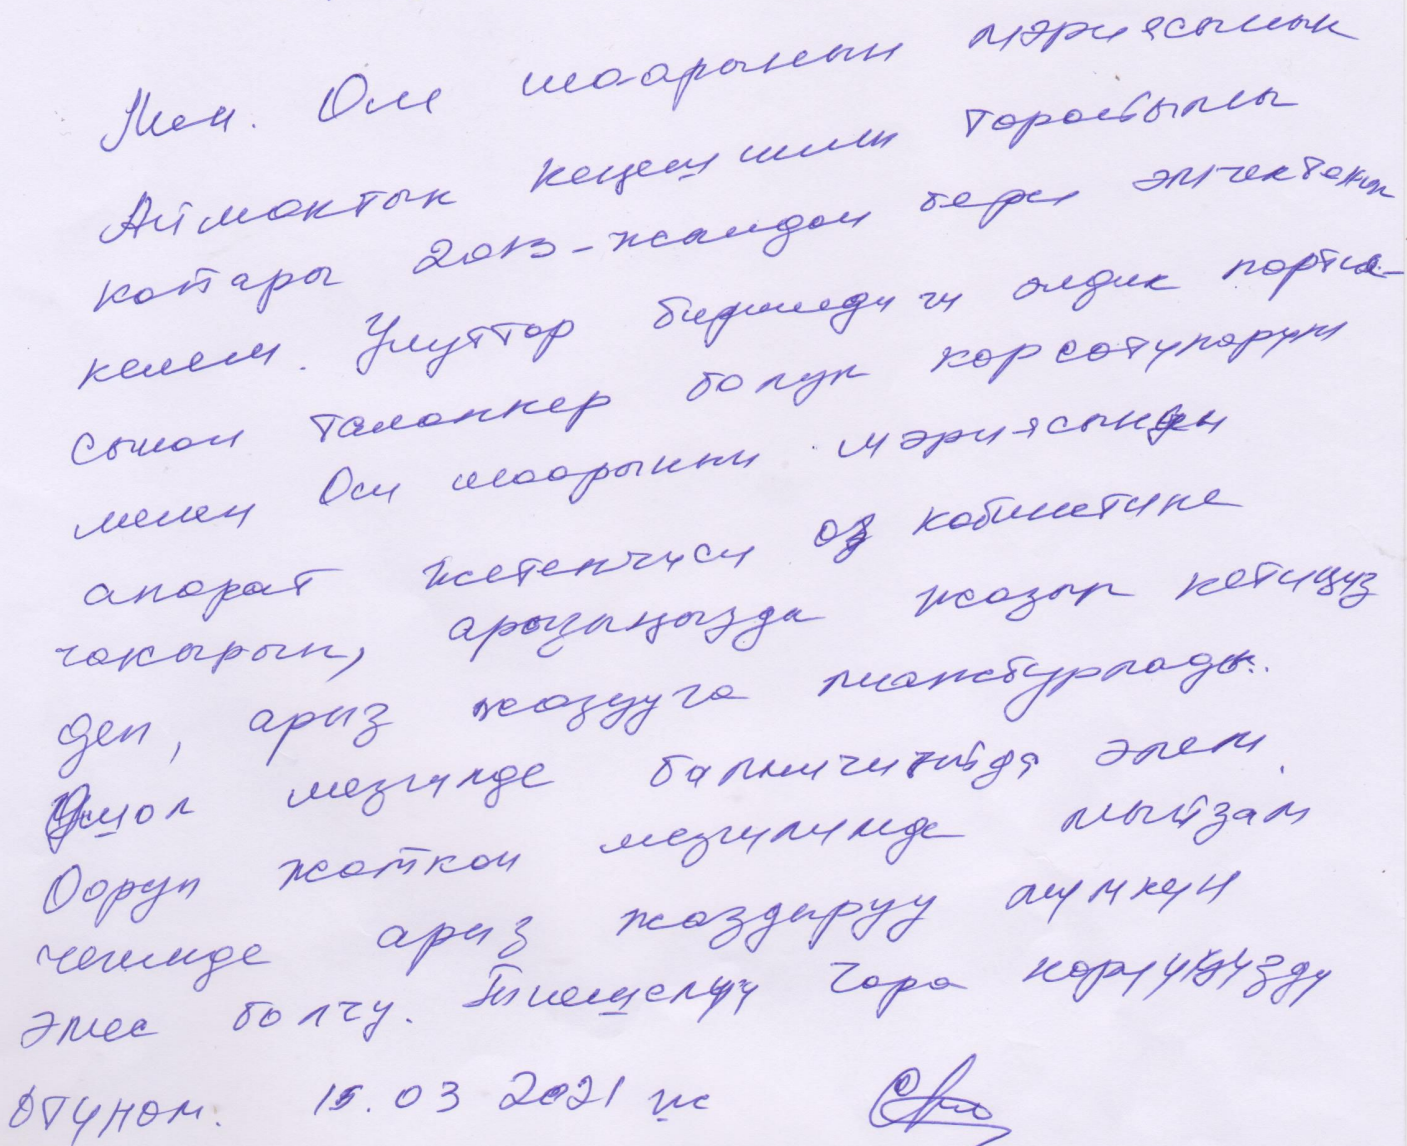 Мен. Ош шаарынын мэриясынын
Аймактык кеңешинин төрағасының
катары 2013-жылдан бери эмгектенип
келем. Улуттар бирилдиги элдик партия-
сынан талапкер болуп көрсөтүлөрүм
менен Ош шаарынын мэриясынын
апарат жетекчиси өз кабинетине
чакырып, арызыңызды жазып кетиңиз
деп, арыз жазууга мажбурлады.
Ошол мезгилде балнычныйда элем.
Ооруп жаткан мезгилимде мыйзам
ченемде арыз жаздыруу мүмкүн
эмес болчу. Тиешелүү чара көрүүңүздү
өтүнөм. 15.03 2021 ж